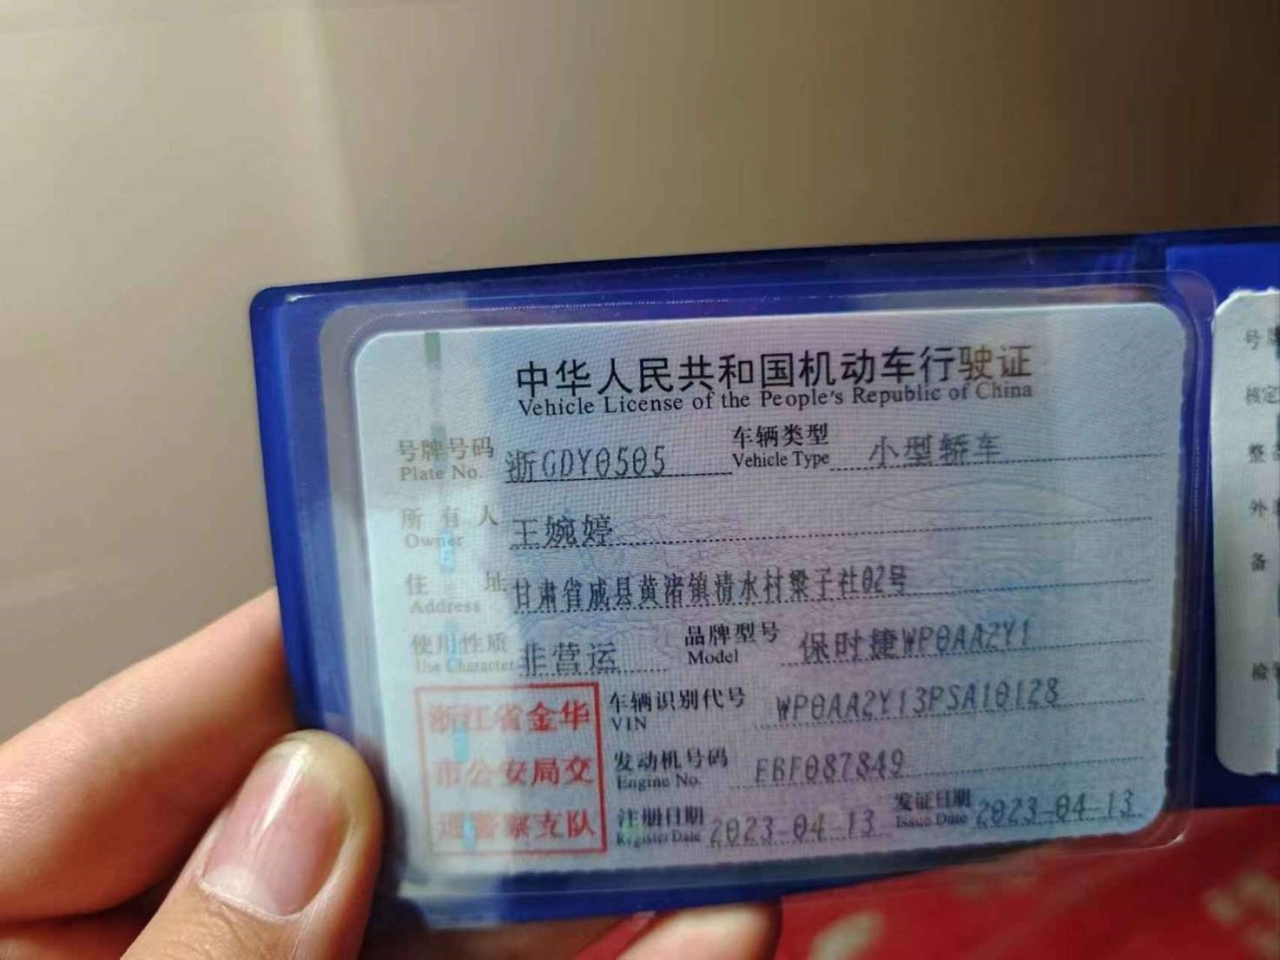 中华人民共和国机动车行驶证
Vehicle License of the People's Republic of China
号牌号码 浙GDY0505 车辆类型 小型轿车
Plate No. Vehicle Type
所有人 王婉婷
Owner
住址 甘肃省成县黄渚镇清水村梁子社02号
Address
使用性质 非营运 品牌型号 保时捷WP0AA2Y1
Use Character Model
浙江省金华
市公安局交
通警察支队
车辆识别代号 WP0AA2Y13PSA10128
VIN
发动机号码 EBF087849
Engine No.
注册日期 2023-04-13 发证日期 2023-04-13
Register Date Issue Date
号
核定
整
外
备
检